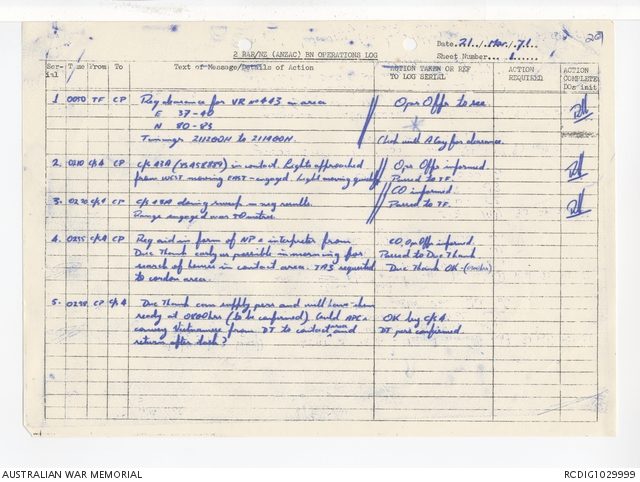 29
Date. 21./.Mar./.71..
2 RAR/NZ (ANZAC) BN OPERATIONS LOG
Sheet Number...1......
Ser-ial Time From To Text of Message/Details of Action ACTION TAKEN OR REF TO LOG SERIAL ACTION REQUIRED ACTION COMPLETE DOs init
1 TF CP Req clearance for VR in area Ops Offr to see
E 37-40
N 80-83
Timings 211200H to 211400H. Chked until A Coy for clearance.
2. 0210 C/S A CP C/S A3A in contact. Lights approached Ops Offr informed.
from WEST moving EAST - engaged. Light moving quickly Passed to TF.
3. 0230 C/S A CP C/S A3A doing sweep - neg results. CO informed.
Range engaged over 50 metres. Passed to TF.
4. 0255 C/S A CP Req aid in form of NP & interpreter from CO, Ops Offr informed
Duc Thanh early as possible in morning for Passed to Duc Thanh
search of houses in contact area. requested Duc Thanh OK
to cordon area.
5. 0258 CP C/S A Duc Thanh can supply pers and will have them
ready at 0800hrs (to be confirmed). Could APCs OK by C/S A.
convey Vietnamese from DT to contact area and DT pers confirmed.
return after task?
AUSTRALIAN WAR MEMORIAL
RCDIG1029999